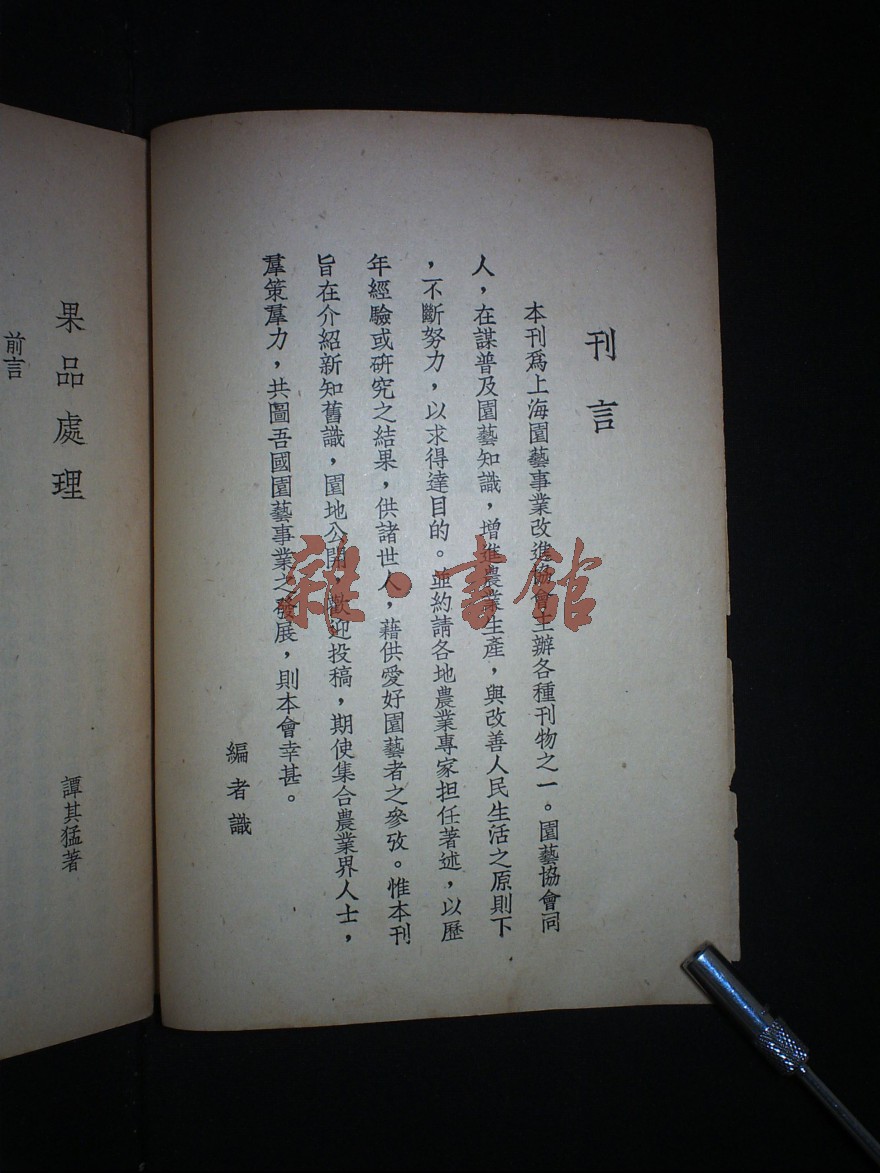 刊言
本刊爲上海園藝事業改進協會主辦各種刊物之一。園藝協會同
人，在謀普及園藝知識，增進農業生產，與改善人民生活之原則下
，不斷努力，以求得達目的。並約請各地農業專家担任著述，以歷
年經驗或研究之結果，供諸世人，藉供愛好園藝者之參攷。惟本刊
旨在介紹新知舊識，園地公開，歡迎投稿，期使集合農業界人士，
羣策羣力，共圖吾國園藝事業之發展，則本會幸甚。
編者識
果品處理
譚其猛著
前言
雜·書館